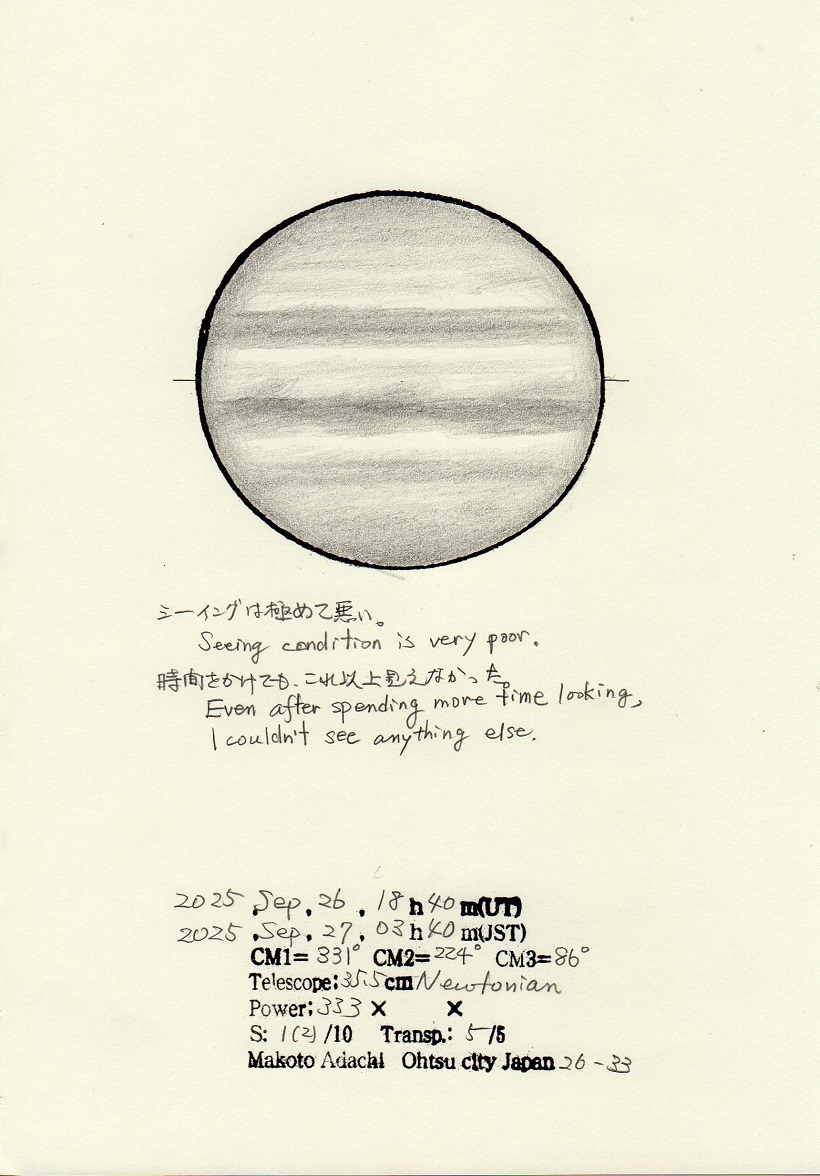 シーイングは極めて悪い。
Seeing condition is very poor.
時間をかけても、これ以上見えなかった。
Even after spending more time looking,
I couldn't see anything else.
2025 , Sep , 26 , 18 h 40 m(UT)
2025 , Sep , 27 , 03 h 40 m(JST)
CM1= 331° CM2= 224° CM3= 86°
Telescope: 35.5 cm Newtonian
Power: 333 × ×
S: 1(2) /10 Transp.: 5 /5
Makoto Adachi Ohtsu city Japan 26-33